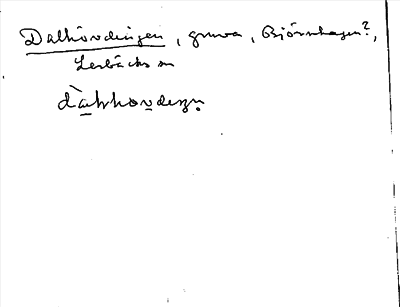 Dalhövdingen, gruva, Björnhagen?,
Lerbäcks sn
dàhhovdeŋ̣